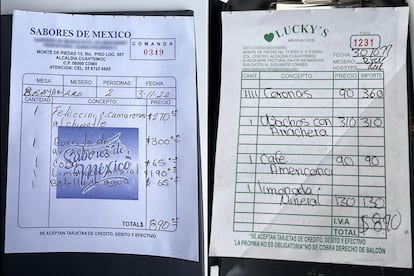 SABORES DE MEXICO
MONTE DE PIEDAD 13, 5to PISO LOC. 507
ALCALDIA CUAUHTEMOC
06000 CDMX
ATENCION: CEL. 55 8725 5885
COMANDA
0349
MESA MESERO PERSONAS FECHA
2 3-11-22
CANTIDAD CONCEPTO PRECIO
1 Fetuccini c. camarones $270
al chipotle
1 $300
1 $65
1 Limonada $190
1 Botella de agua $65
Sabores de México
TOTAL $ 890
SE ACEPTAN TARJETAS DE CREDITO, DEBITO Y EFECTIVO
LUCKY'S
MEXICAN FOOD
1231
FECHA
MESA
MESERO
HOSTESS
CANT CONCEPTO PRECIO IMPORTE
1111 Coronas 90 360
1 Nachos con 310 310
Arrachera
1 Café 90 90
Americano
1 limonada 130 130
Mineral
I.V.A
TOTAL $ 890
SE ACEPTAN TARJETAS DE CREDITO, DEBITO Y EFECTIVO
LA PROPINA NO ES OBLIGATORIA NO SE COBRA DERECHO DE BALCÓN